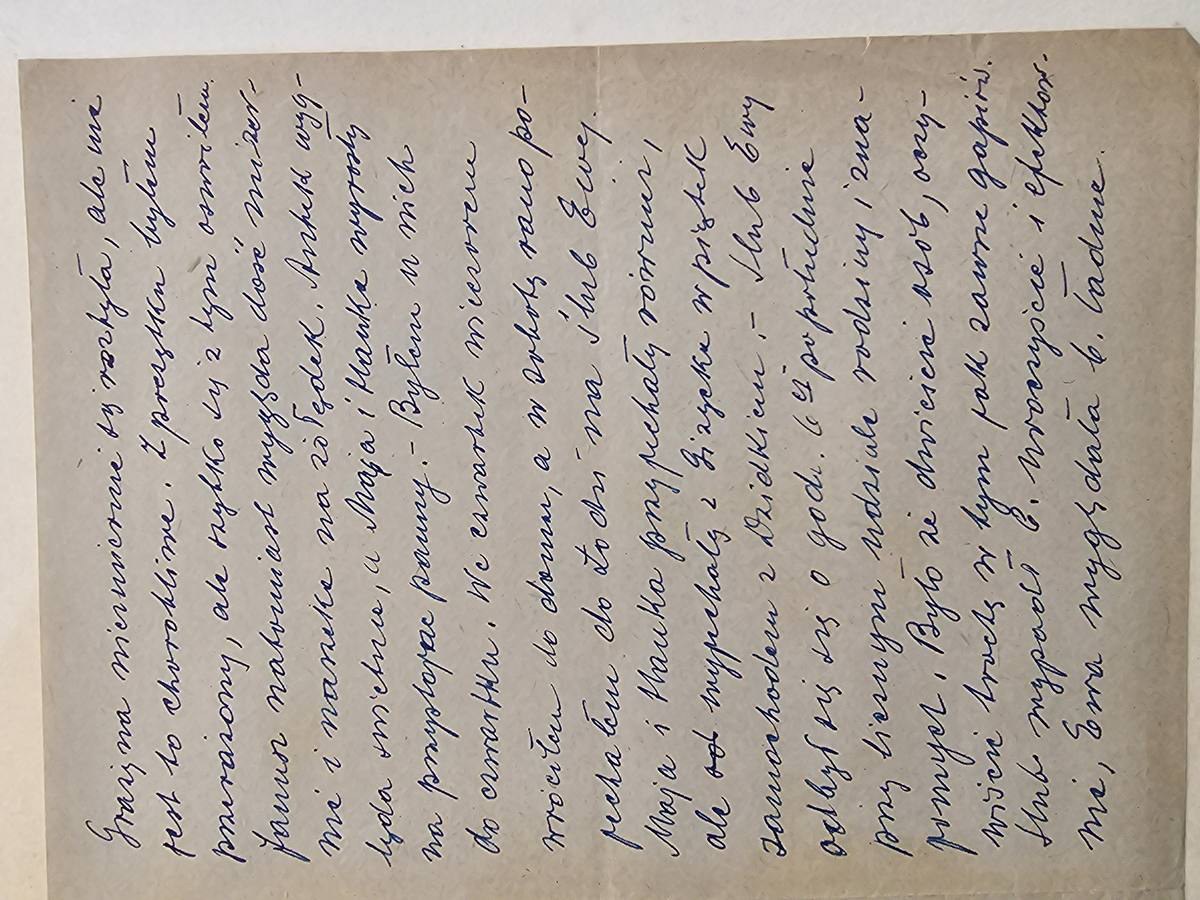 Grażyna niezmiernie się roztyła, ale nie
jest to chorobliwe. Z początku byłem
przerażony, ale szybko się z tym oswoiłem.
Janusz natomiast wygląda dość mizer-
nie i narzeka na żołądek. Antek wyg-
ląda świetnie, a Maja i Hanka wyrosły
na przystojne panny. – Byłem u nich
do czwartku. We czwartek wieczorem
wróciłem do domu, a w sobotę rano po-
jechałem do Łodzi na ślub Ewy.
Maja i Hanka przyjechały również,
ale wyjechały z Giżycka w piątek
samochodem z Dziadkiem. – Ślub Ewy
odbył się o godz. 6ej popołudniu
przy licznym udziale rodziny i zna-
jomych. Było ze dwieście osób, oczy-
wiście trochę w tym jak zawsze gapiów.
Ślub wypadł b. uroczyście i efektow-
nie, Ewa wyglądała b. ładnie.